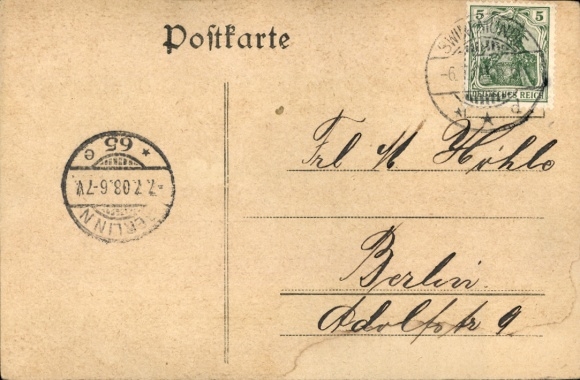 Postkarte
5 5
SWINEMÜNDE
-6.
d
DEUTSCHES REICH
Frl M Höhle
Berlin.
Adolfstr 9.
BERLIN N
7.7.08.6-7V.
* 65 e